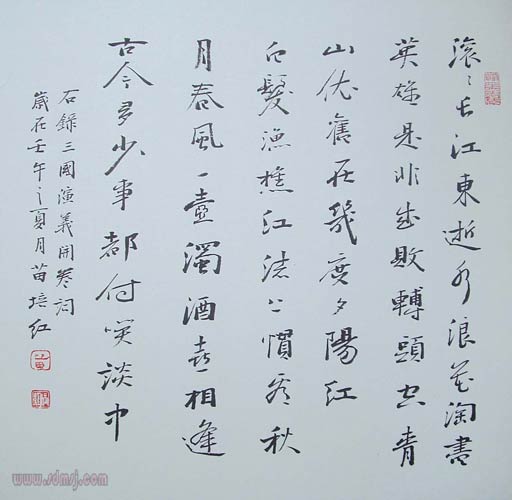 滚〻长江東逝水浪花淘盡
英雄是非成敗轉頭空青
山依舊在幾度夕陽红
白髮漁樵江渚上慣看秋
月春風一壺濁酒喜相逢
古今多少事都付笑談中
右録三國演義開卷词
歲在壬午之夏月苗培红
www.sdmsj.com